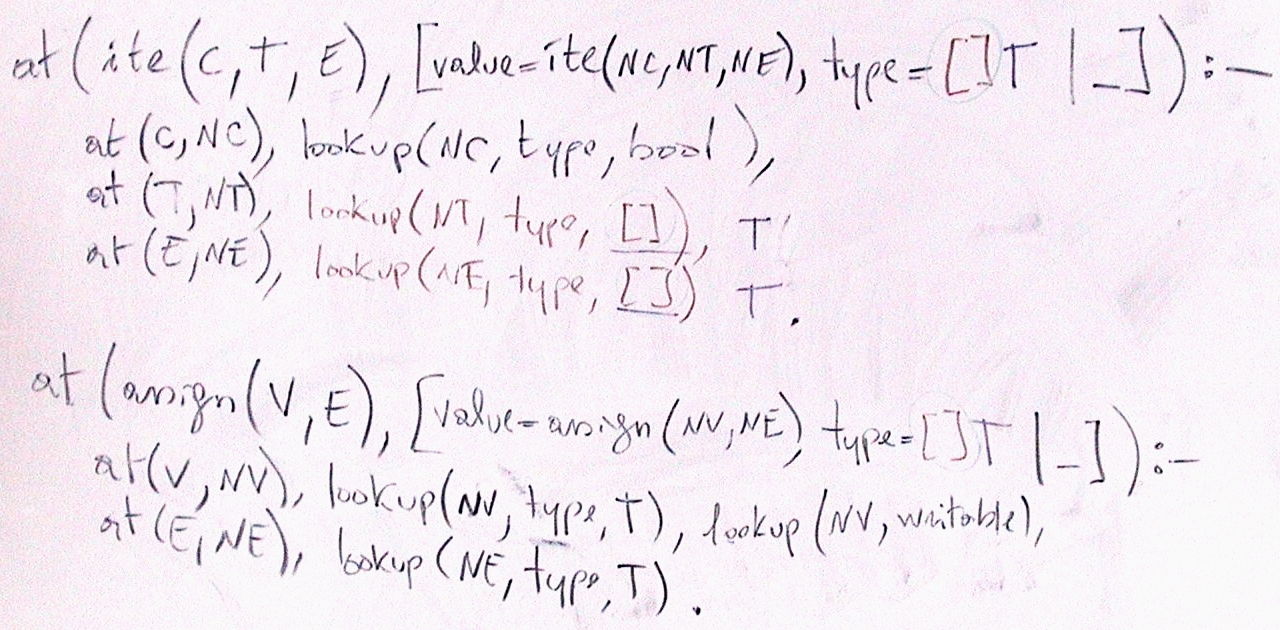 at(ite(C,T,E),[value=ite(NC,NT,NE), type=[]T |_]):-
at(C,NC), lookup(NC, type, bool),
at(T,NT), lookup(NT, type, []), T
at(E,NE), lookup(NE, type, []) T.
at(assign(V,E),[value=assign(NV,NE), type=[]T |_]):-
at(V,NV), lookup(NV, type, T), lookup(NV, writable),
at(E,NE), lookup(NE, type, T).